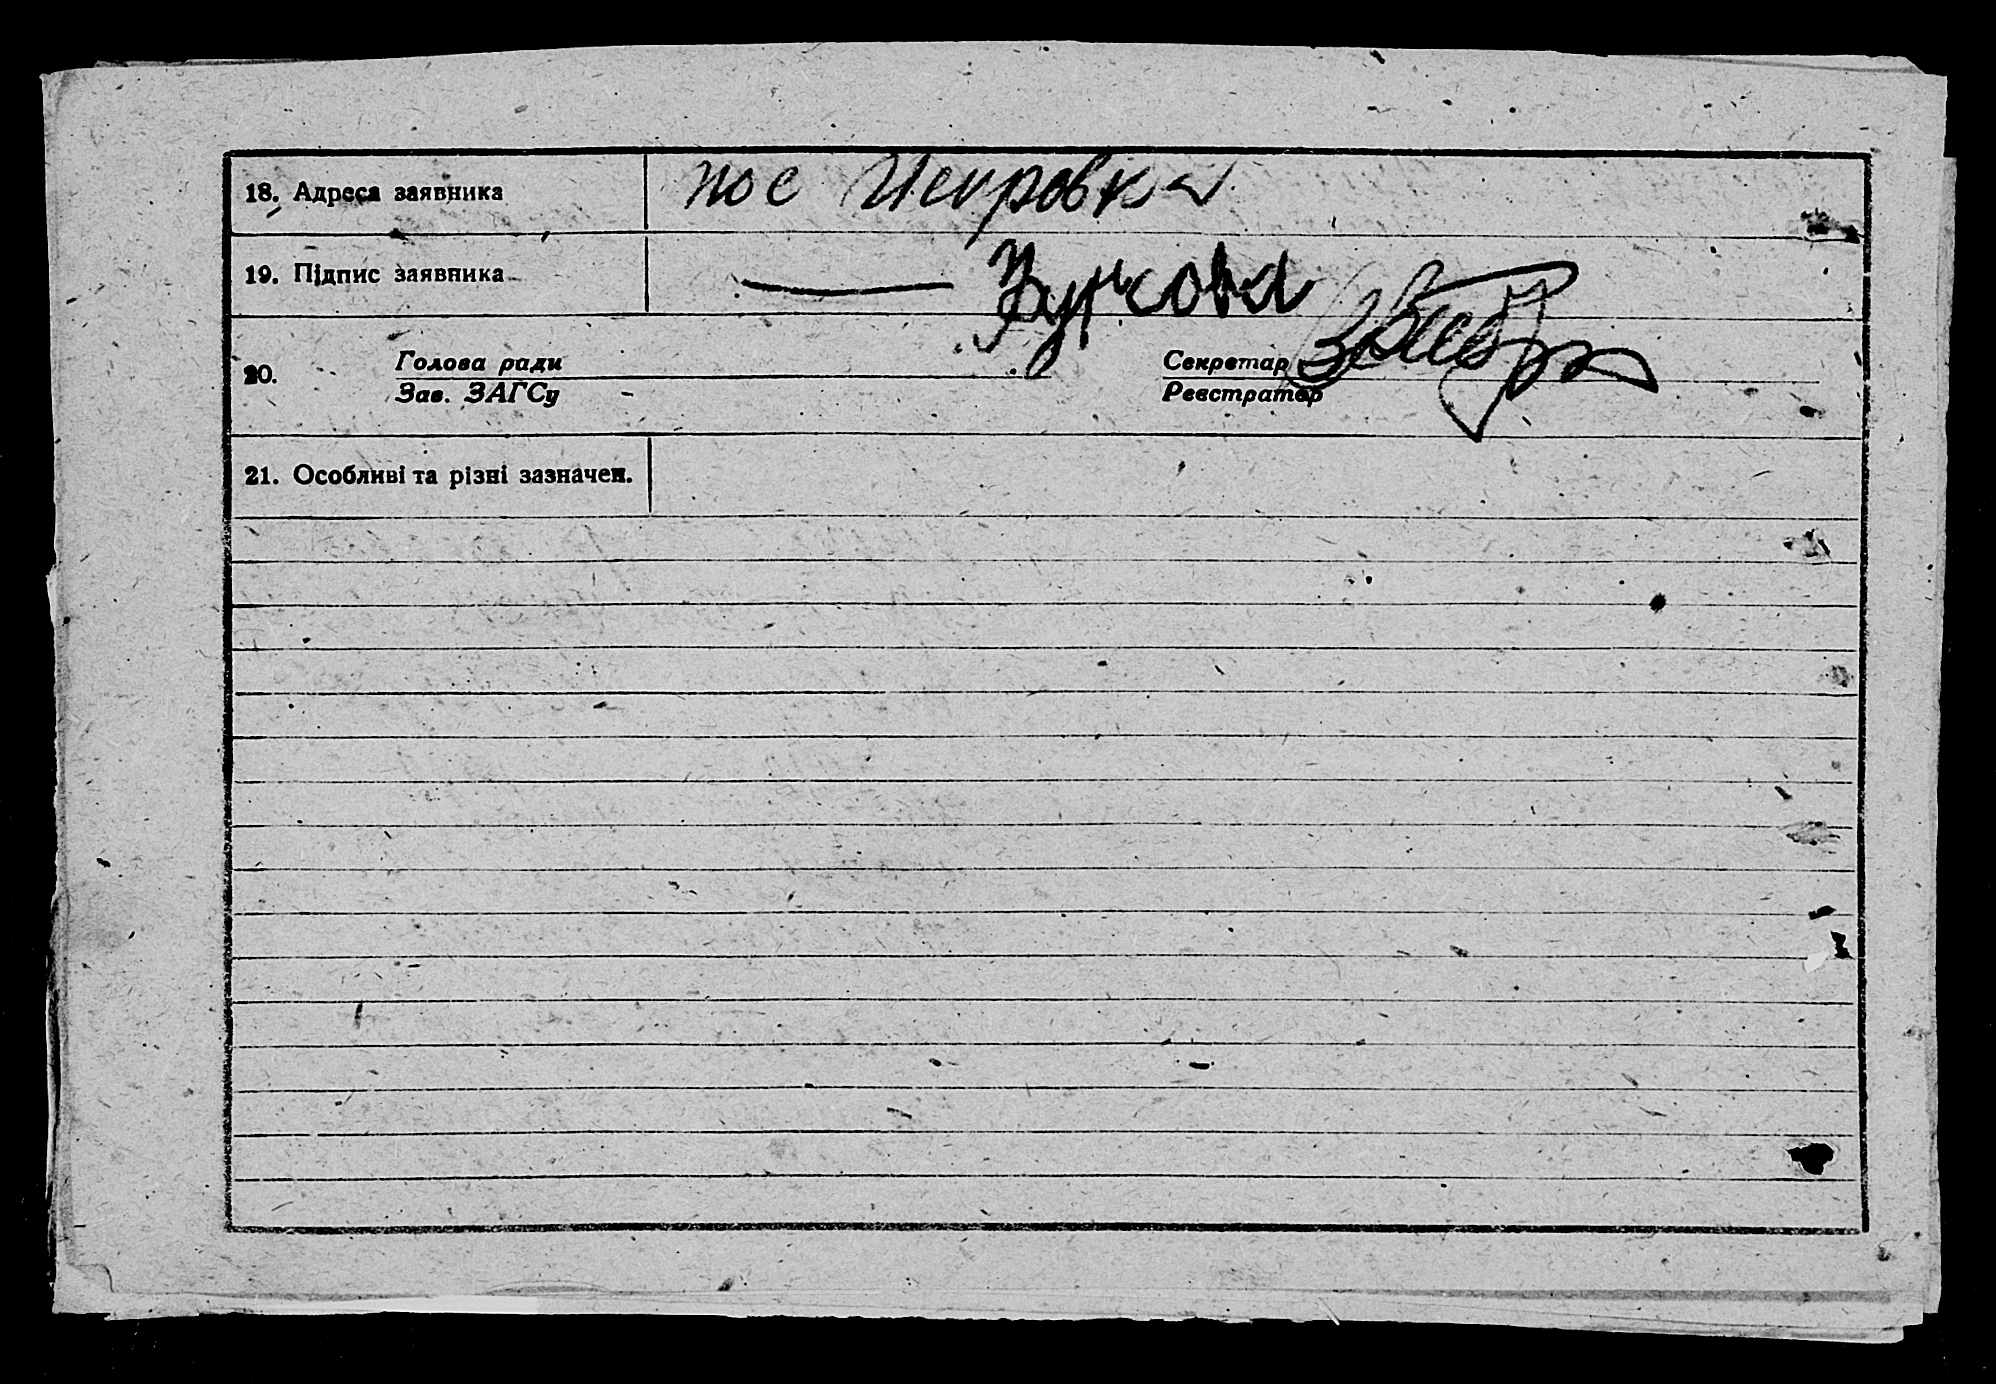 18. Адреса заявника пос Искровка
19. Підпис заявника —
20. Голова ради Секретар
Зав. ЗАГСу Реєстратор
21. Особливі та різні зазначен.